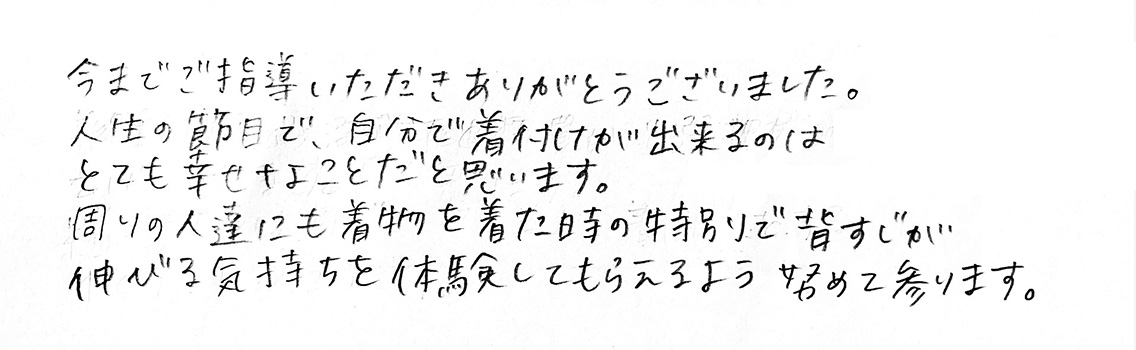 今までご指導いただきありがとうございました。
人生の節目で、自分で着付けが出来るのは
とても幸せなことだと思います。
周りの人達にも着物を着た時の特別で背すじが
伸びる気持ちを体験してもらえるよう努めて参ります。